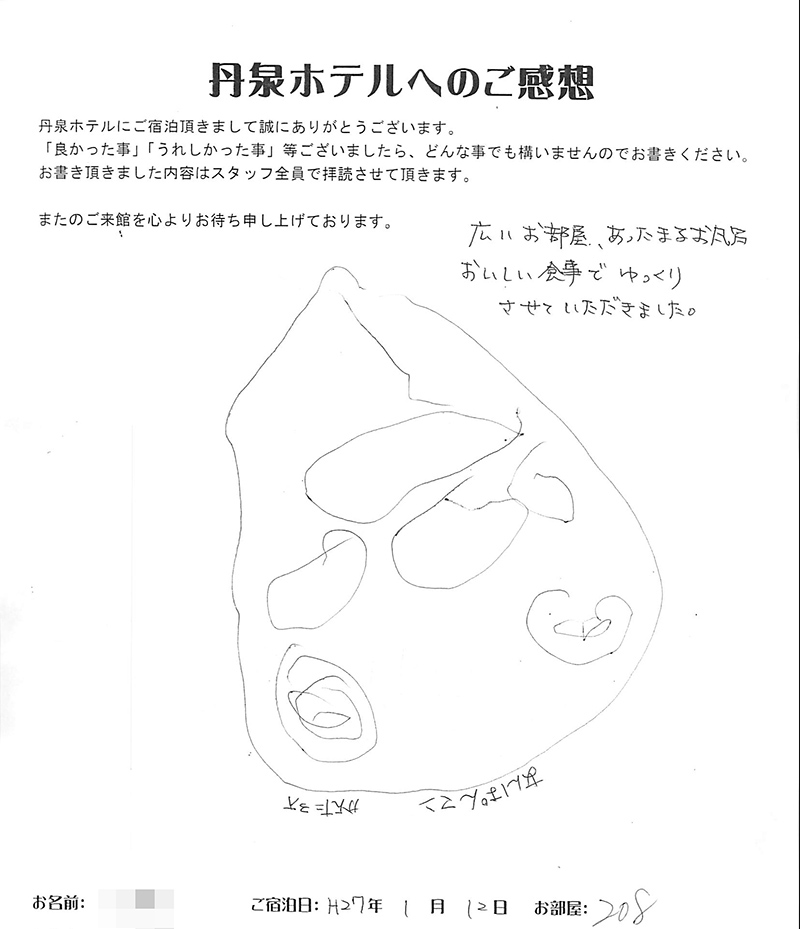 丹泉ホテルへのご感想
丹泉ホテルにご宿泊頂きまして誠にありがとうございます。
「良かった事」「うれしかった事」等ございましたら、どんな事でも構いませんのでお書きください。
お書き頂きました内容はスタッフ全員で拝読させて頂きます。
またのご来館を心よりお待ち申し上げております。
広いお部屋、あったまるお風呂
おいしい食事でゆっくり
させていただきました。
あんぱんマン
お名前:
ご宿泊日:H27年 1月 12日 お部屋:208